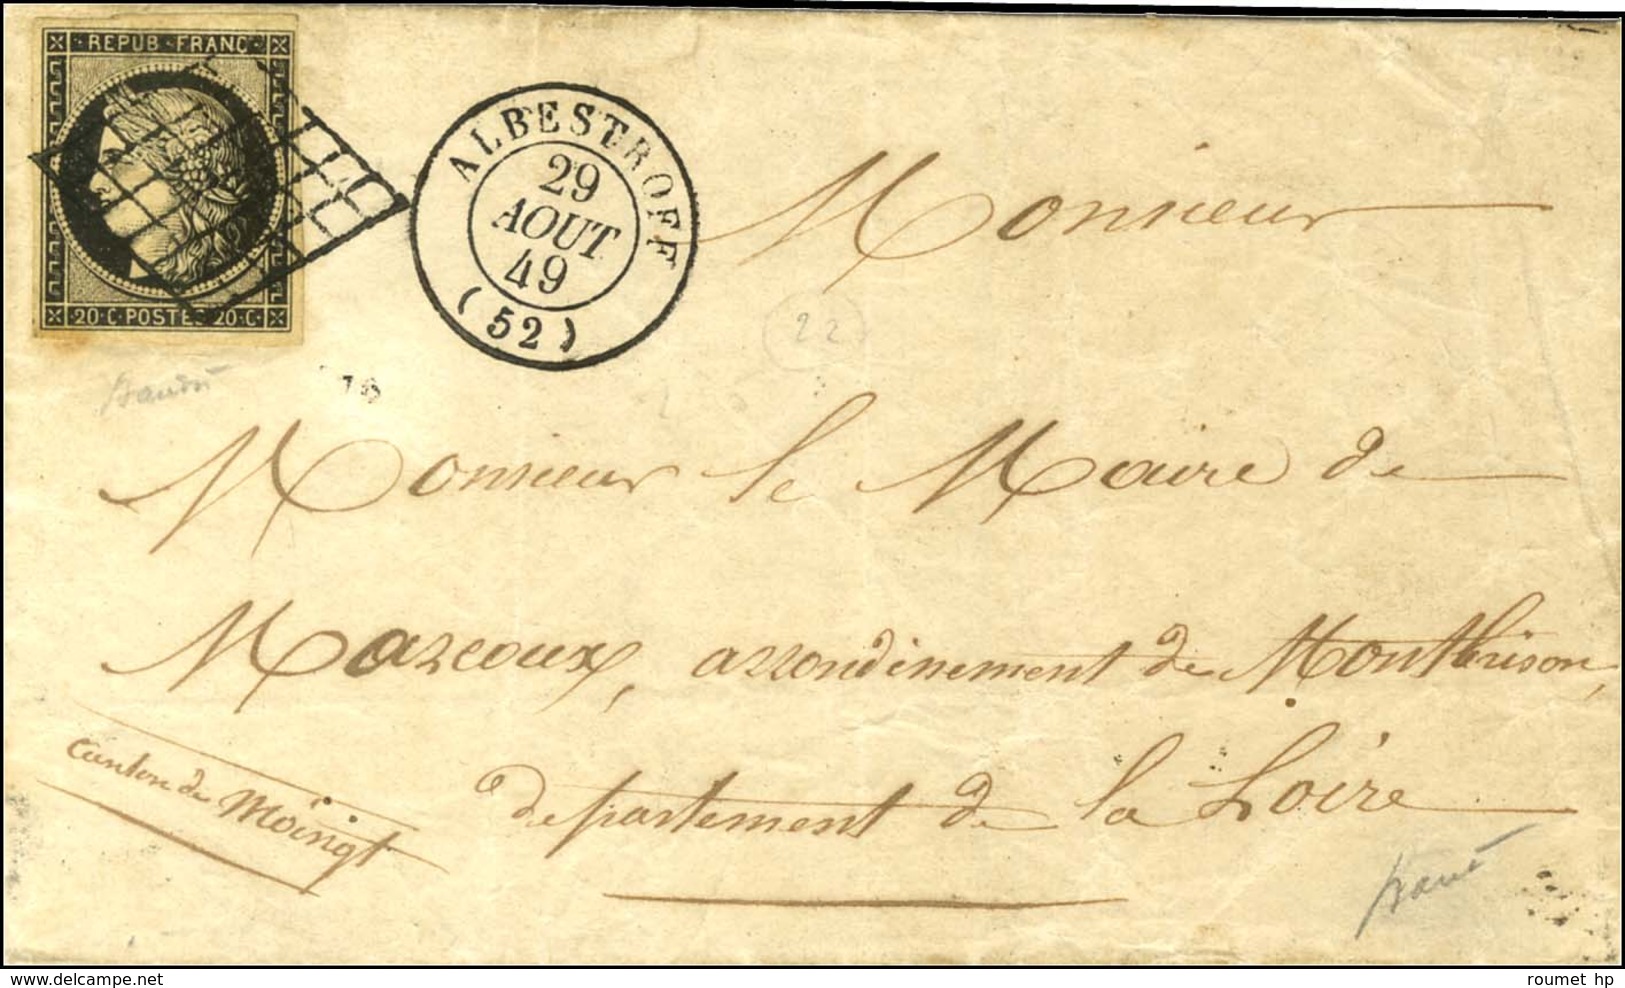 REPUB·FRANC·
20·C·POSTES 20·C·
ALBESTROFF
29
AOUT
49
(52)
Monsieur
22
Monsieur le Maire de
Marcoux, arrondinement de Montbrison,
departement de la Loire
Canton de Moingt
delcampe.net
roumet hp